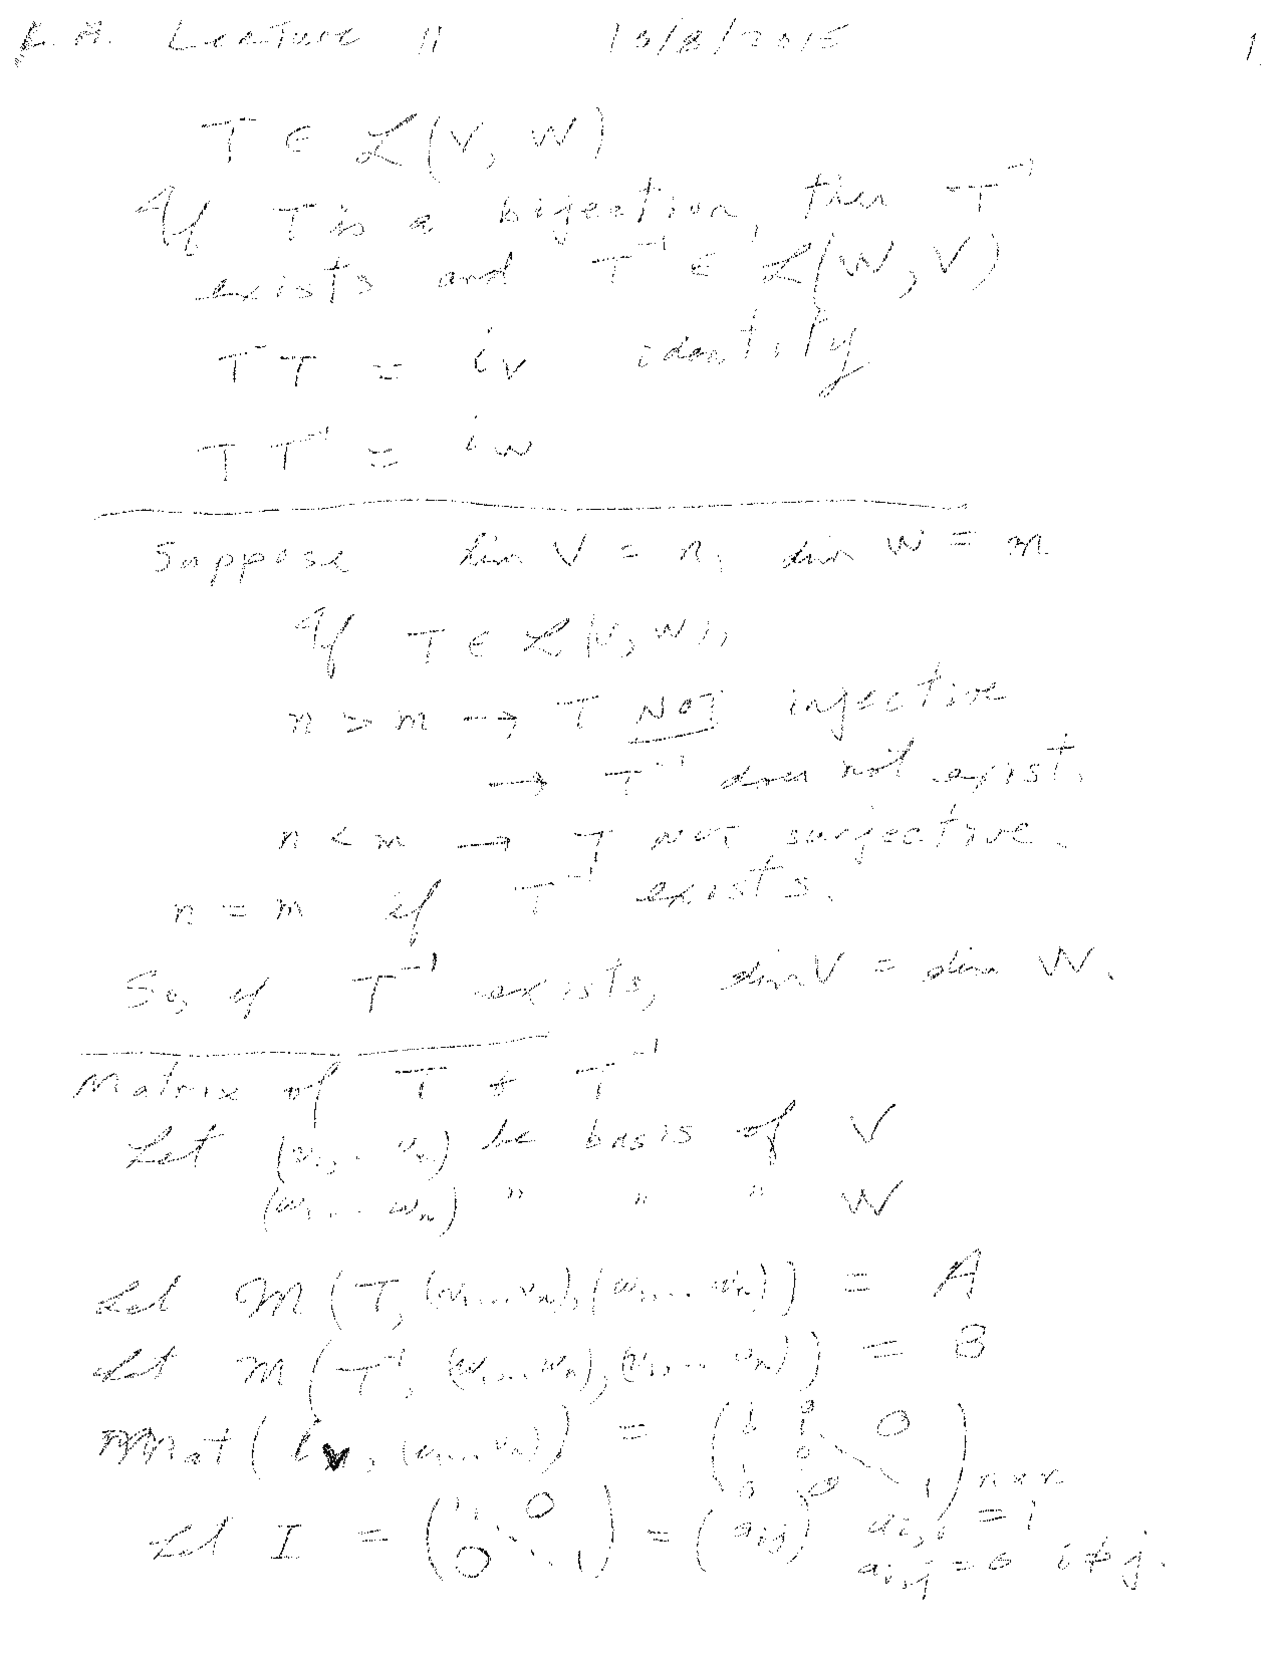 L. A. Lecture 11 13/8/2015 1.
T ∈ ℒ(V, W)
If T is a bijection, then T⁻¹
exists and T⁻¹ ∈ ℒ(W, V)
T⁻T = i_V identity
T T⁻¹ = i_W
Suppose dim V = n, dim W = m
If T ∈ ℒ(V, W),
n > m → T NOT injective
→ T⁻¹ does not exist.
n < m → T NOT surjective.
n = m if T⁻¹ exists.
So, if T⁻¹ exists, dim V = dim W.
Matrix of T + T⁻¹
Let (v₁, .. vₙ) be basis of V
(w₁ ... wₙ) " " " W
Let M(T, (v₁...vₙ), (w₁, ... wₙ)) = A
Let M(T⁻¹, (w₁...wₙ), (v₁, ... vₙ)) = B
Mat(i_V, (v₁...vₙ)) = (1 0 0 1 0 0 0 1) n×n
Let I = (1 0 0 ⋱ 1) = (a_{ij}) a_{i,i} = 1
a_{i,j} = 0 i ≠ j.